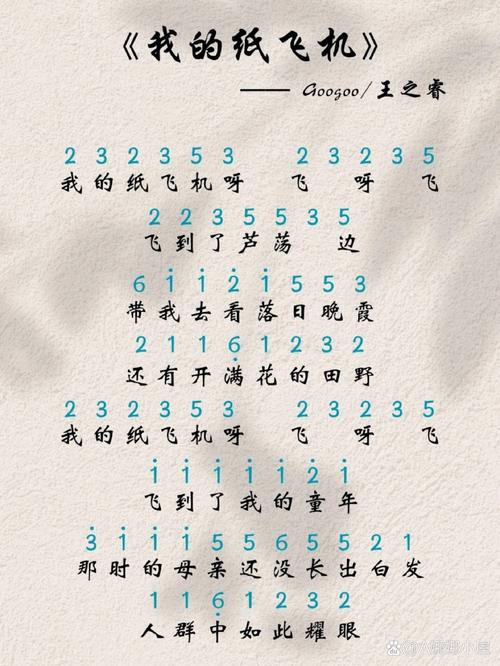 《我的纸飞机》
—— Googoo/王之睿
2 3 2 3 5 3 2 3 2 3 5
我的纸飞机呀 飞 呀 飞
2 2 3 5 5 3 5
飞到了芦荡 边
6 1̇ 1̇ 2̇ 1̇ 5 5 3
带我去看落日晚霞
2 1 1 6̣ 1 2 3 2
还有开满花的田野
2 3 2 3 5 3 2 3 2 3 5
我的纸飞机呀 飞 呀 飞
1̇ 1̇ 1̇ 1̇ 1̇ 2̇ 1̇
飞到了我的童年
3̇ 1̇ 1̇ 1̇ 5 5 6 5 5 2 1
那时的母亲还没长出白发
1 1 6̣ 1 2 3 2
人群中如此耀眼